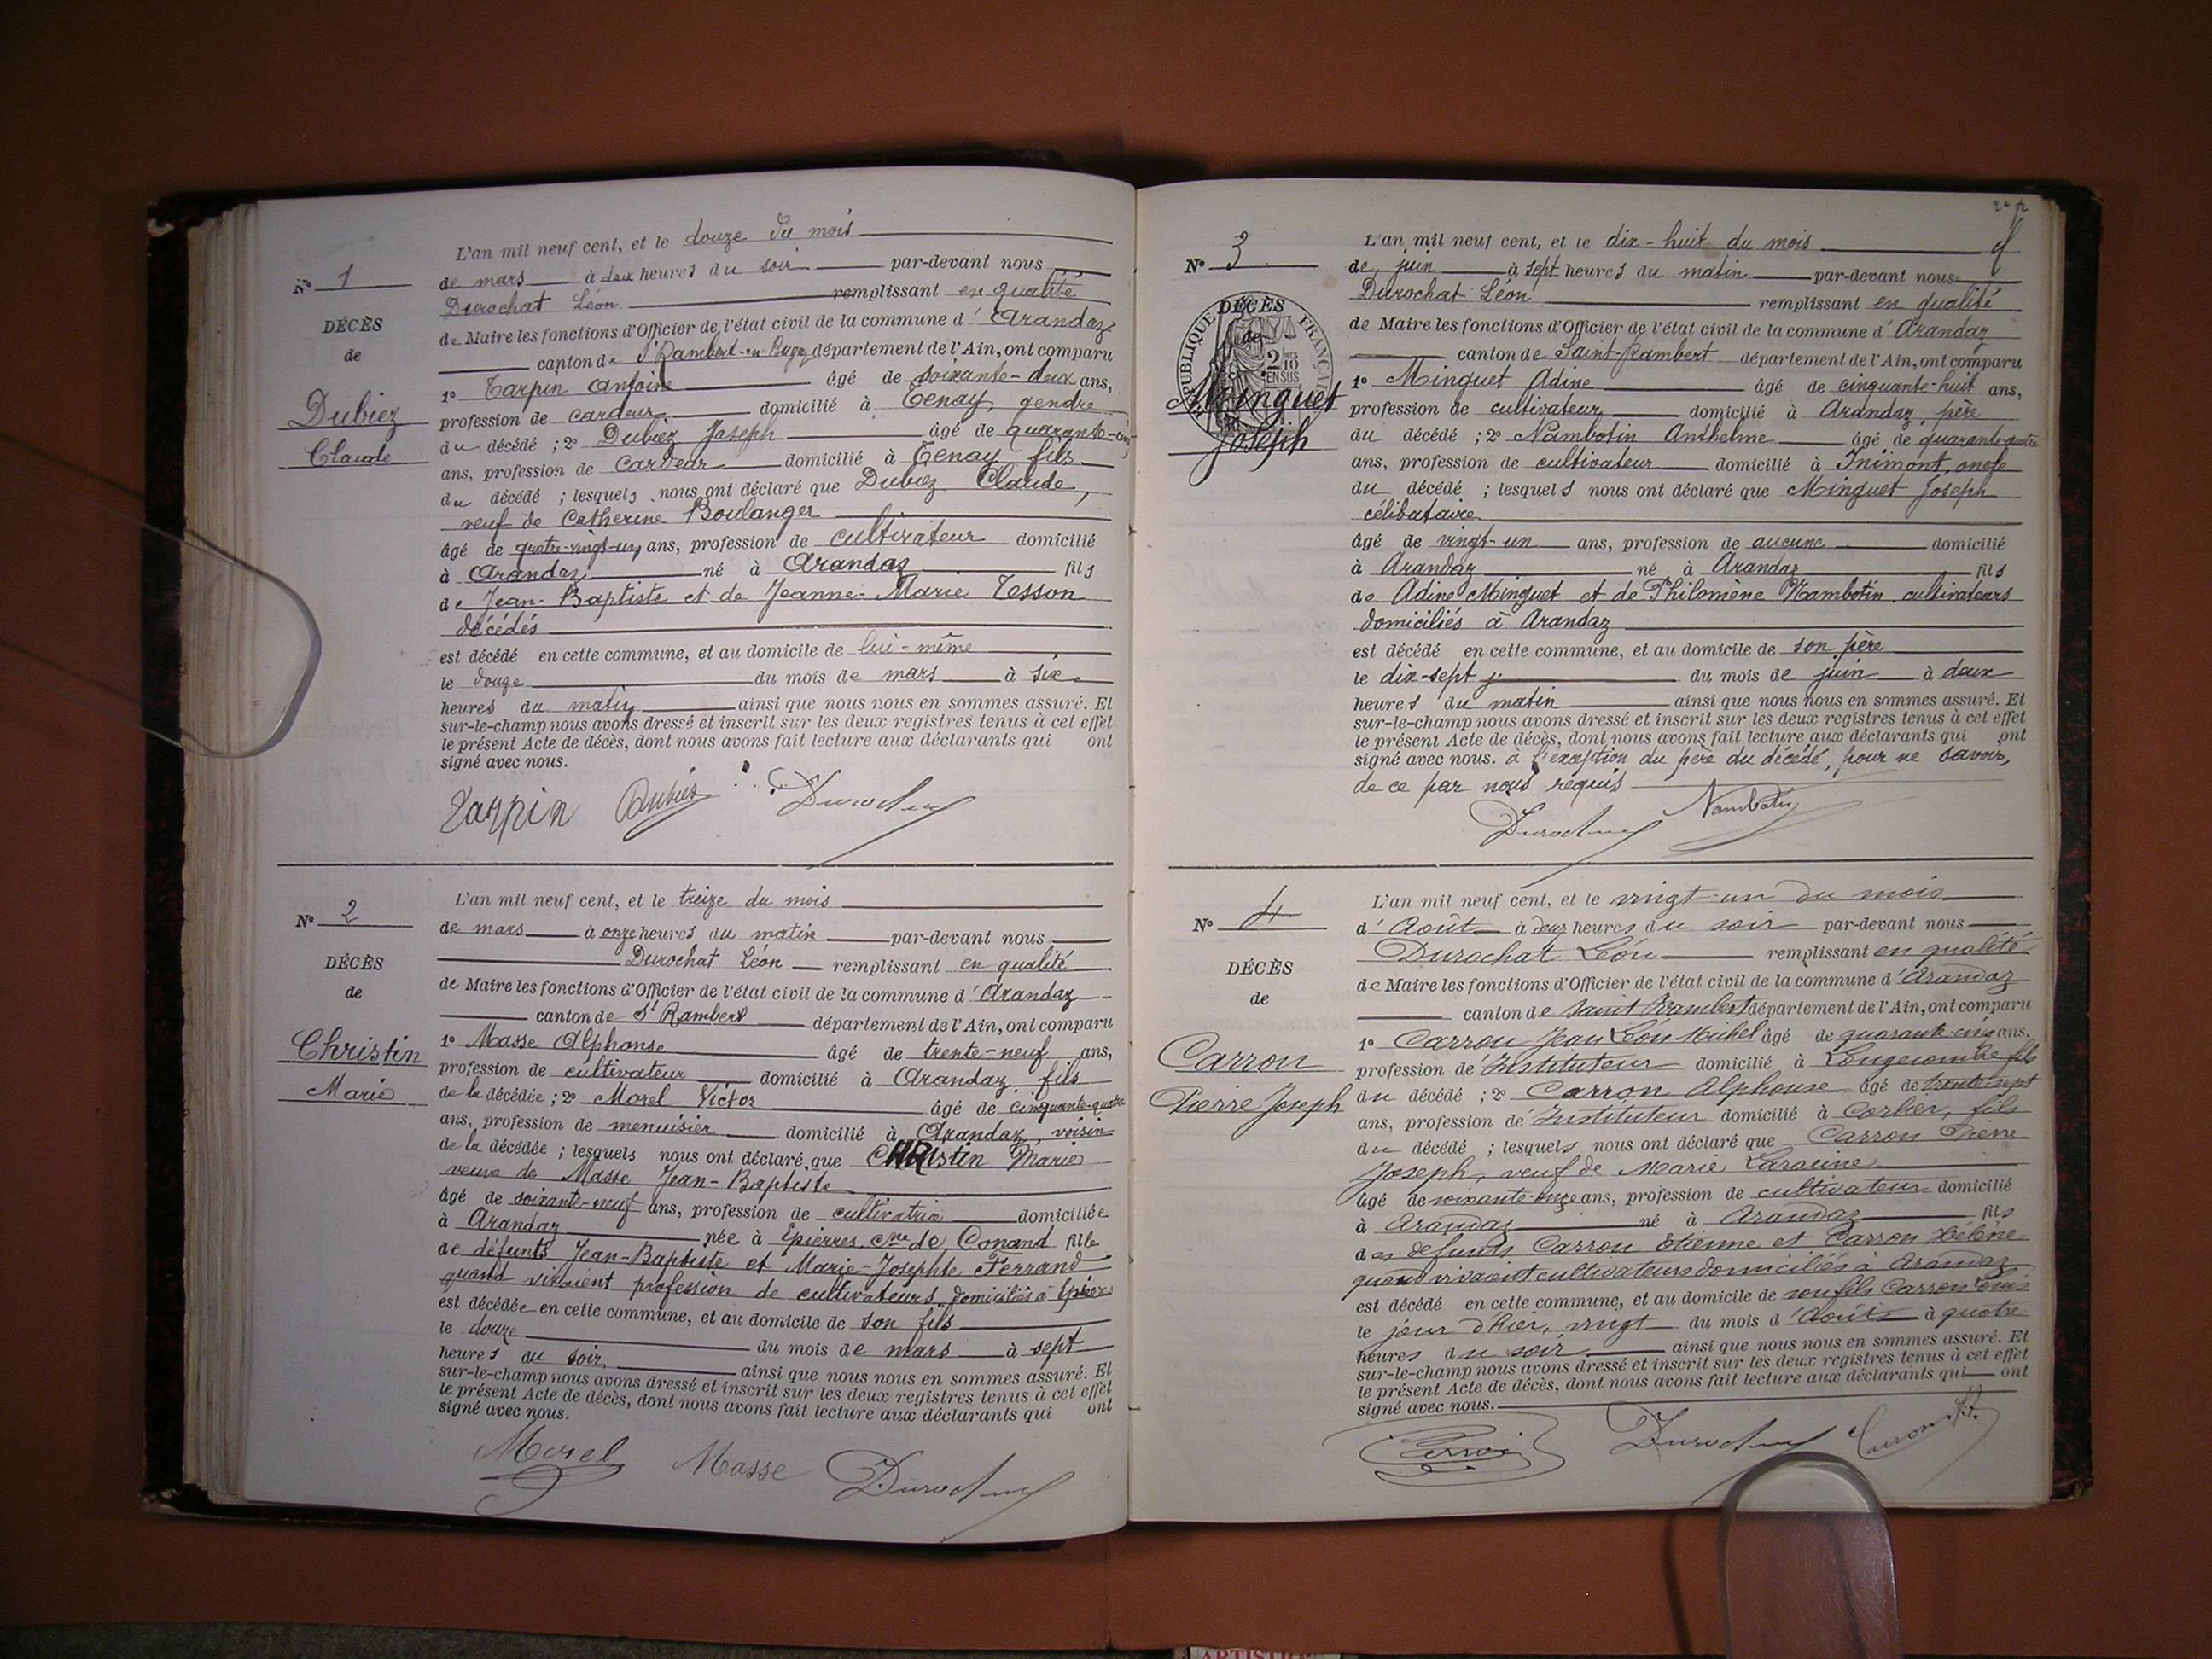 L'an mil neuf cent, et le douze du mois
N° 1
de mars à deux heures du soir par-devant nous
Durochat Léon remplissant en qualité
DÉCÈS
de Maire les fonctions d'Officier de l'état civil de la commune d'Arandaz
de
canton de St Rambert-en-Bugey département de l'Ain, ont comparu
1° Tarpin Antoine âgé de soixante-deux ans,
Dubiez
profession de cardeur domicilié à Tenay, gendre
du décédé ; 2° Dubiez Joseph âgé de quarante-cinq
Claude
ans, profession de cardeur domicilié à Tenay fils
du décédé ; lesquels nous ont déclaré que Dubiez Claude,
veuf de Catherine Boulanger
âgé de quatre-vingt-un ans, profession de cultivateur domicilié
à Arandaz né à Arandaz fils
de Jean-Baptiste et de Jeanne-Marie Tesson
décédés
est décédé en cette commune, et au domicile de lui-même
le douze du mois de mars à six
heures du matin ainsi que nous nous en sommes assuré. Et
sur-le-champ nous avons dressé et inscrit sur les deux registres tenus à cet effet
le présent Acte de décès, dont nous avons fait lecture aux déclarants qui ont
signé avec nous.
Tarpin Dubiez Durochat
L'an mil neuf cent, et le treize du mois
N° 2
de mars à onze heures du matin par-devant nous
Durochat Léon remplissant en qualité
DÉCÈS
de Maire les fonctions d'Officier de l'état civil de la commune d'Arandaz
de
canton de St Rambert département de l'Ain, ont comparu
1° Masse Alphonse âgé de trente-neuf ans,
Christin
profession de cultivateur domicilié à Arandaz fils
Marie
de la décédée ; 2° Morel Victor âgé de cinquante-quatre
ans, profession de menuisier domicilié à Arandaz, voisin
de la décédée ; lesquels nous ont déclaré que Christin Marie
veuve de Masse Jean-Baptiste
âgé de soixante-neuf ans, profession de cultivatrice domiciliée
à Arandaz née à Epierres, cne de Conand fille
de défunts Jean-Baptiste et Marie-Josephte Ferrand
quand vivaient profession de cultivateurs domiciliés à Epierres
est décédée en cette commune, et au domicile de son fils
le douze du mois de mars à sept
heures du soir ainsi que nous nous en sommes assuré. Et
sur-le-champ nous avons dressé et inscrit sur les deux registres tenus à cet effet
le présent Acte de décès, dont nous avons fait lecture aux déclarants qui ont
signé avec nous.
Morel Masse Durochat
L'an mil neuf cent, et le dix-huit du mois
N° 3
de juin à sept heures du matin par-devant nous
Durochat Léon remplissant en qualité
DÉCÈS
RÉPUBLIQUE FRANÇAISE
de Maire les fonctions d'Officier de l'état civil de la commune d'Arandaz
de
2 10 EN SUS
canton de Saint-Rambert département de l'Ain, ont comparu
1° Minguet Adine âgé de cinquante-huit ans,
Minguet
profession de cultivateur domicilié à Arandaz, père
Joseph
du décédé ; 2° Nambotin Anthelme âgé de quarante-quatre
ans, profession de cultivateur domicilié à Inimont, oncle
du décédé ; lesquels nous ont déclaré que Minguet Joseph
célibataire
âgé de vingt-un ans, profession de aucune domicilié
à Arandaz né à Arandaz fils
de Adine Minguet et de Philomène Nambotin, cultivateurs
domiciliés à Arandaz
est décédé en cette commune, et au domicile de son père
le dix-sept du mois de juin à deux
heures du matin ainsi que nous nous en sommes assuré. Et
sur-le-champ nous avons dressé et inscrit sur les deux registres tenus à cet effet
le présent Acte de décès, dont nous avons fait lecture aux déclarants qui ont
signé avec nous. à l'exception du père du décédé, pour ne savoir,
de ce par nous requis
Durochat Nambotin
L'an mil neuf cent, et le vingt-un du mois
N° 4
d'Août à deux heures du soir par-devant nous
Durochat Léon remplissant en qualité
DÉCÈS
de Maire les fonctions d'Officier de l'état civil de la commune d'Arandaz
de
canton de Saint Rambert département de l'Ain, ont comparu
1° Carron Jean Léon Michel âgé de quarante-cinq ans.
Carron
profession d'Instituteur domicilié à Longecombe fils
Pierre Joseph
du décédé ; 2° Carron Alphonse âgé de trente-sept
ans, profession d'Instituteur domicilié à Corlier, fils
du décédé ; lesquels nous ont déclaré que Carron Pierre
Joseph, veuf de Marie Laracine
âgé de soixante-onze ans, profession de cultivateur domicilié
à Arandaz né à Arandaz fils
des defunts Carron Etienne et Carron Hélène
quand vivaient cultivateurs domiciliés à Arandaz
est décédé en cette commune, et au domicile de son fils Carron Louis
le jour d'hier, vingt du mois d'Août à quatre
heures du soir ainsi que nous nous en sommes assuré. Et
sur-le-champ nous avons dressé et inscrit sur les deux registres tenus à cet effet
le présent Acte de décès, dont nous avons fait lecture aux déclarants qui ont
signé avec nous.
Carron Durochat Carron
ARTISTIQUE